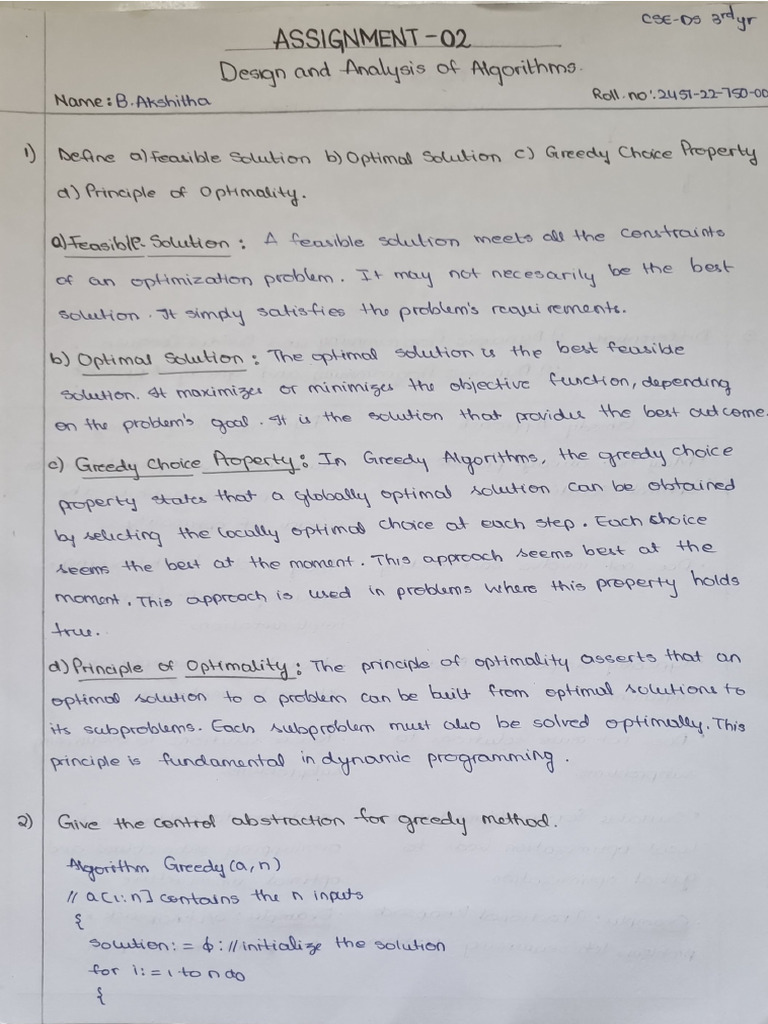 CSE-DS 3rd yr
ASSIGNMENT-02
Design and Analysis of Algorithms.
Name: B.Akshitha
Roll.no: 2451-22-750-00
1) Define a) Feasible Solution b) Optimal Solution c) Greedy Choice Property
d) Principle of Optimality.
a) Feasible Solution: A feasible solution meets all the constraints
of an optimization problem. It may not necesarily be the best
solution. It simply satisfies the problem's requirements.
b) Optimal Solution: The optimal solution is the best feasible
solution. It maximizes or minimizes the objective function, depending
on the problem's goal. It is the solution that provides the best outcome.
c) Greedy Choice Property: In Greedy Algorithms, the greedy choice
property states that a globally optimal solution can be obtained
by selecting the locally optimal choice at each step. Each choice
seems the best at the moment. This approach seems best at the
moment. This approach is used in problems where this property holds
true.
d) Principle of Optimality: The principle of optimality asserts that an
optimal solution to a problem can be built from optimal solutions to
its subproblems. Each subproblem must also be solved optimally. This
principle is fundamental in dynamic programming.
2) Give the control abstraction for greedy method.
Algorithm Greedy(a,n)
// a[1:n] contains the n inputs
{
solution: = ϕ: // initialize the solution
for i: = 1 to n do
{